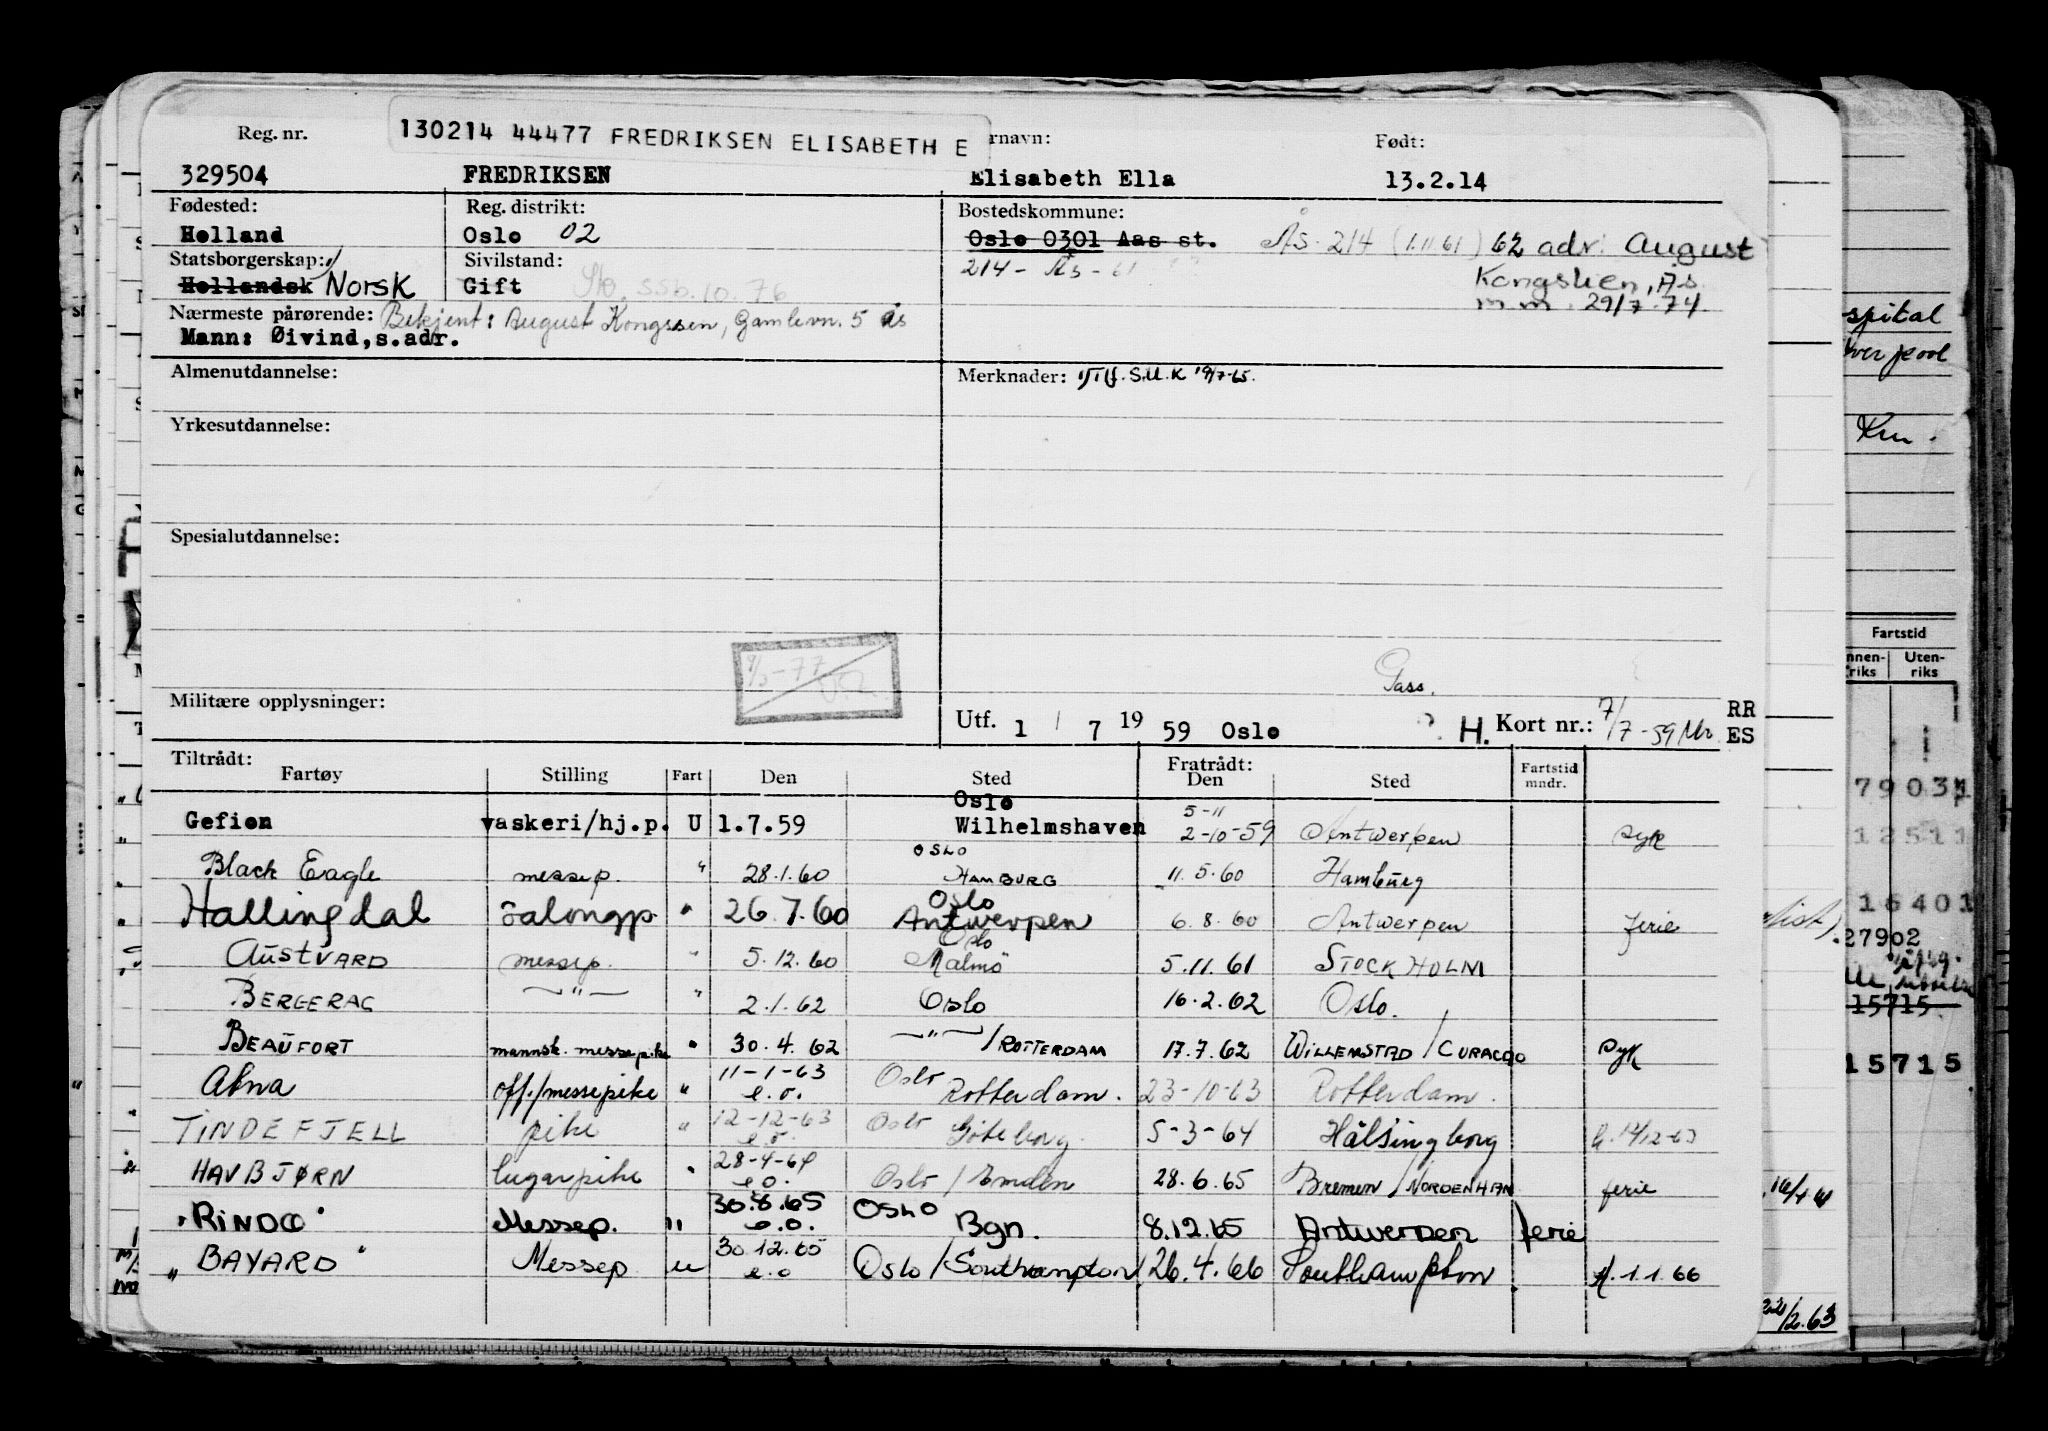 130214 44477 FREDRIKSEN ELISABETH E
Reg. nr. rnavn: Født:
329504 FREDRIKSEN Elisabeth Ella 13.2.14
Fødested: Reg. distrikt: Bostedskommune:
Holland Oslo 02 Oslo 0301 Aas st. Ås 214 (1.11.61) 62 adr: August
Statsborgerskap: Sivilstand: 214 - Ås - 61 Kongslien, Ås
Hollandsk Norsk Gift ssb. 10. 76 m.m. 29/7.74.
Nærmeste pårørende: Bekjent: August Kongssen, Gamlevn. 5 Ås
Mann: Øivind, s.adr.
Almenutdannelse: Merknader: S.U.K 19/7-65.
Yrkesutdannelse:
Spesialutdannelse:
9/3-77
Pass.
Militære opplysninger: Utf. 1 / 7 19 59 Oslo H. Kort nr.: 7/7-59 RR
ES
Tiltrådt: Fratrådt:
Fartøy Stilling Fart Den Sted Den Sted Fartstid mndr.
Gefion vaskeri/hj.p. U 1.7.59 Oslo Wilhelmshaven 5-11 2-10-59 Antwerpen syk
Black Eagle messep. " 28.1.60 OSLO HAMBURG 11.5.60 Hamburg
Hallingdal salongp " 26.7.60 Oslo Antwerpen 6.8.60 Antwerpen ferie
AUSTVARD messep. " 5.12.60 Oslo Malmö 5.11.61 STOCKHOLM
BERGERAC —"— " 2.1.62 Oslo 16.2.62 Oslo.
BEAUFORT mannsk. messepike " 30.4.62 —"—/ROTTERDAM 17.7.62 WILLEMSTAD/CURACAO syk
Abna off./messepike " 11-1-63 e.o. Oslo Rotterdam. 23-10-63 Rotterdam.
TINDEFJELL pike " 12-12-63 e.o. Oslo Göteborg. 5-3-64 Hälsingborg 14/12-63
HAVBJØRN lugarpike " 28-4-64 e.o. Oslo / Emden 28.6.65 Bremen/NORDENHAN ferie
"RINDO" Messep. " 30.8.65 e.o. OSLO Bgn. 8.12.65 Antwerpen ferie
"BAYARD" Messep u 30.12.65 e.o Oslo/Southampton 26.4.66 Southampton 1.1.66
spital
verpool
Fartstid
nnen-
riks
Uten-
riks
79031
12511
16401
27902
15715
15715
22/2.63